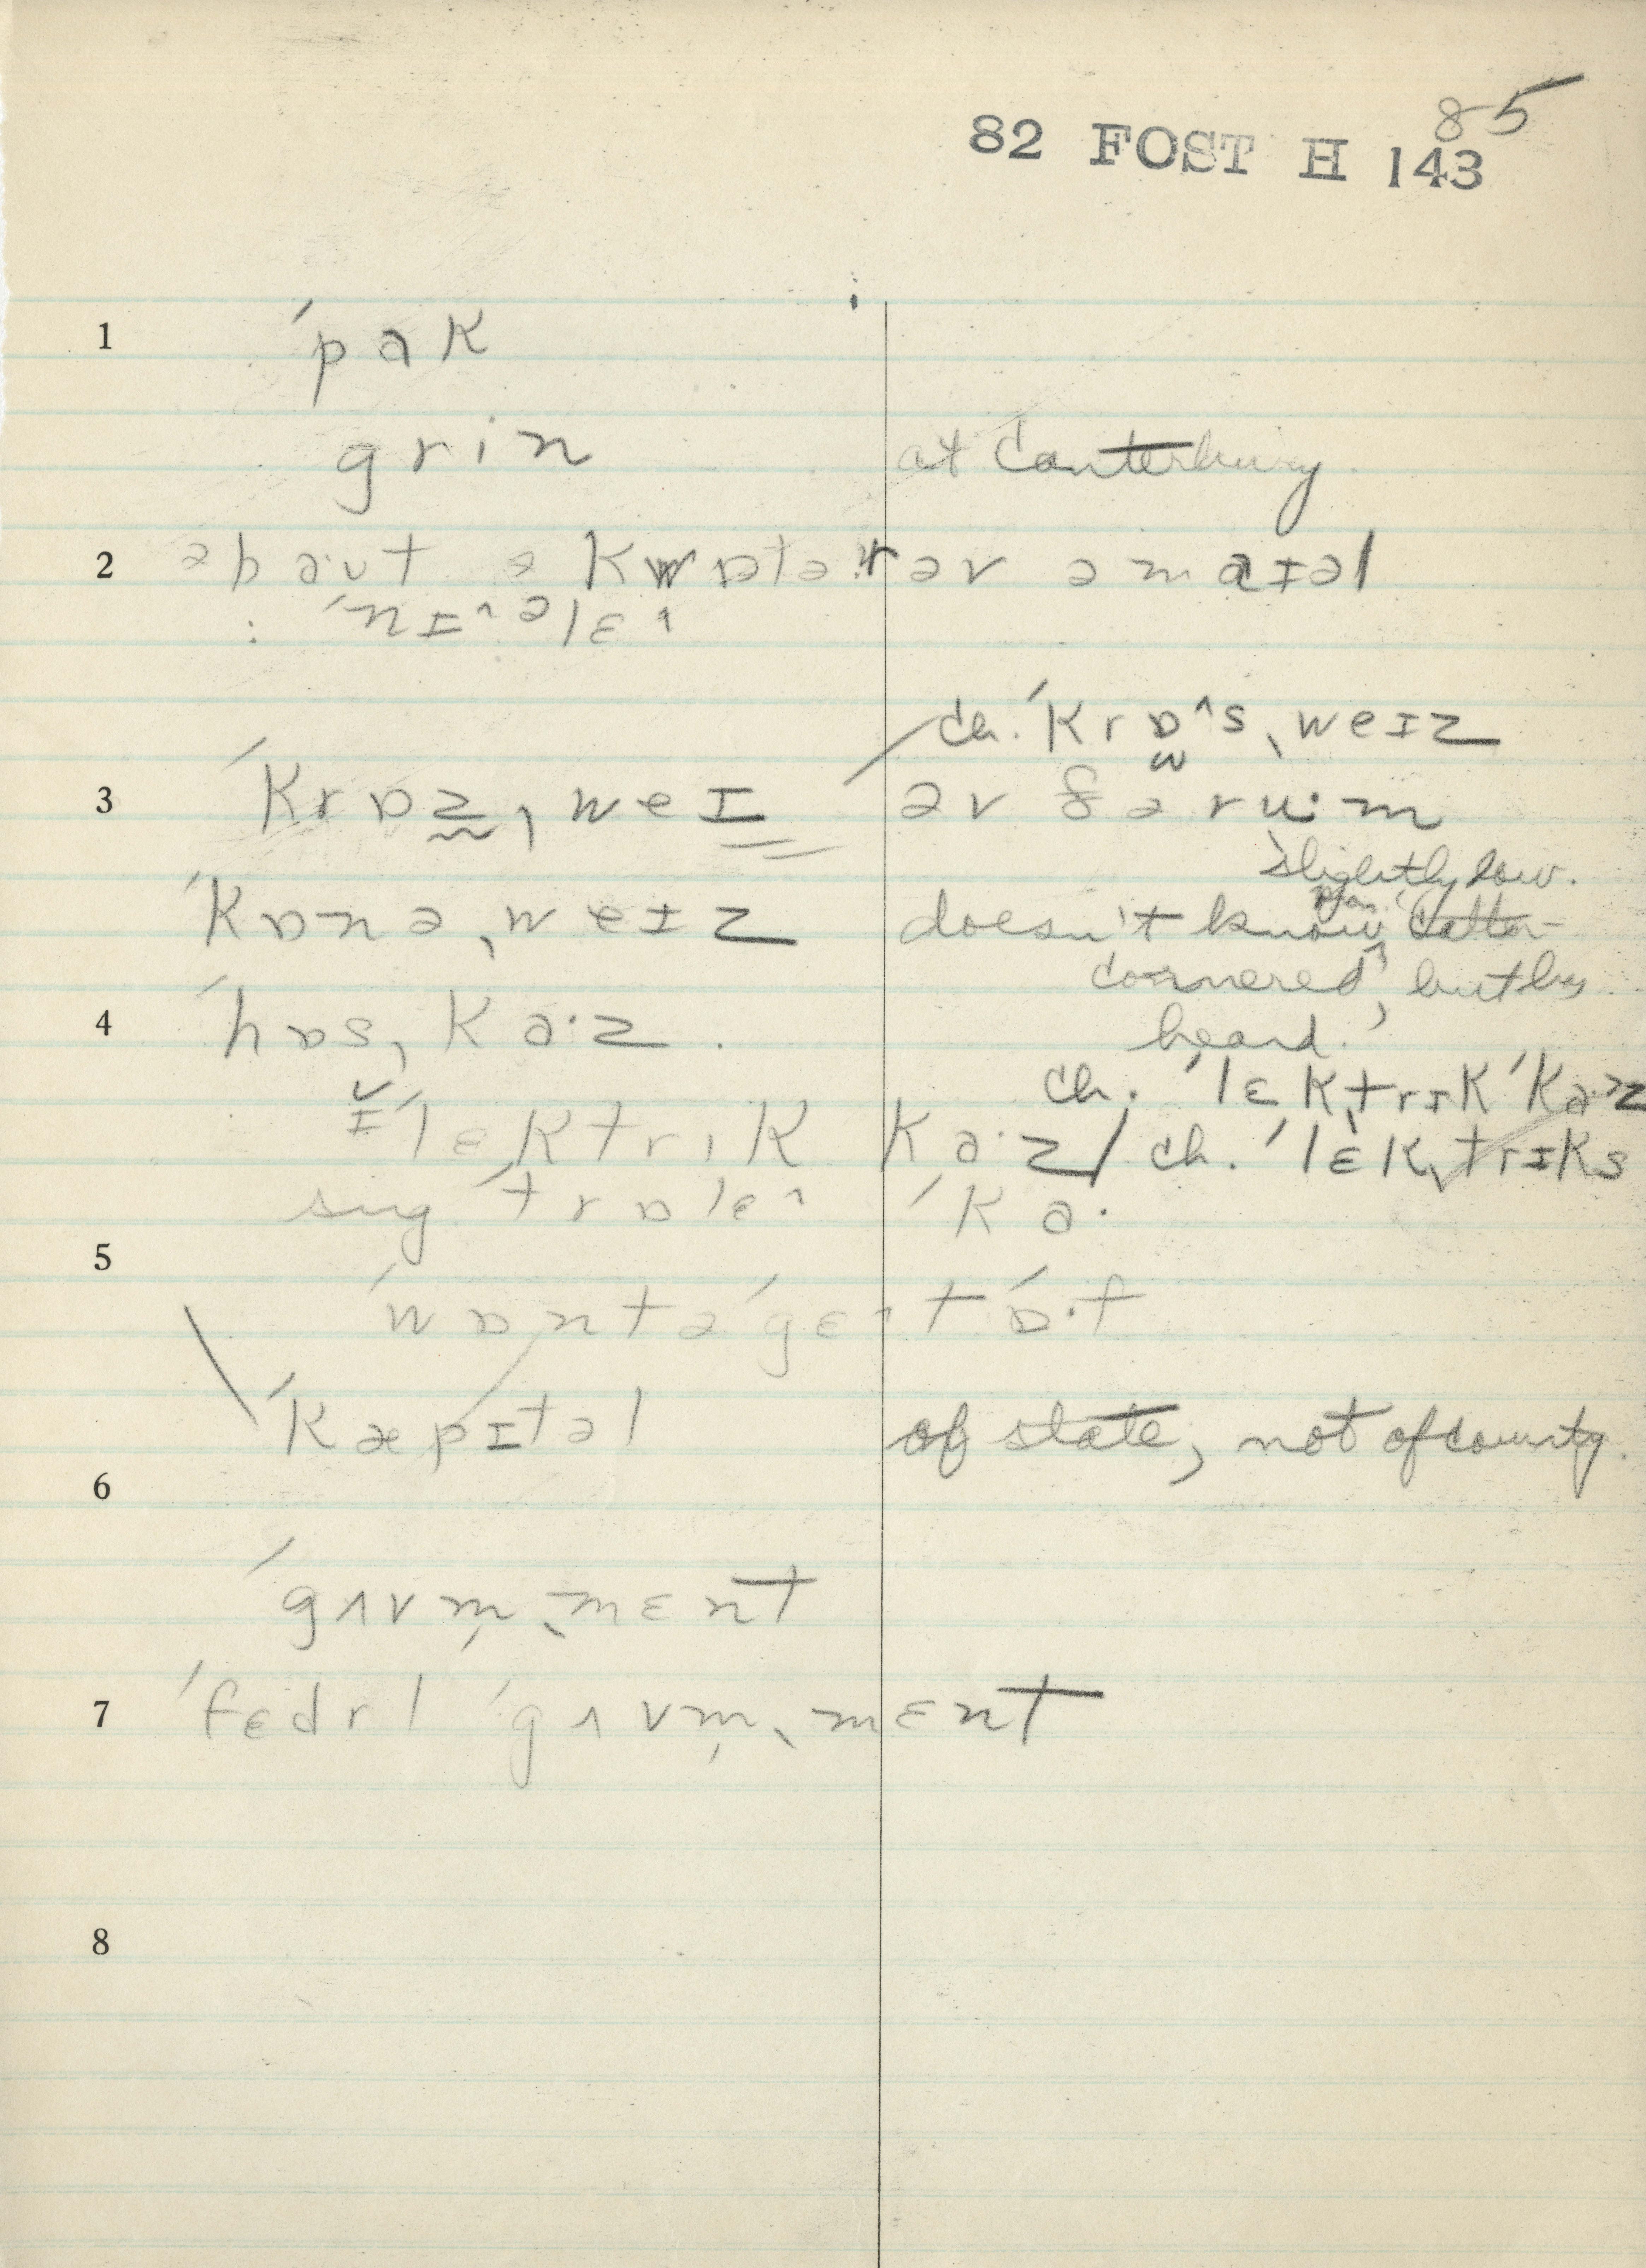 85
82 FOST H 143
1 ˈpak
grin at Canterbury
2 əbaut ə kwɒtər əv ə maɪəl
: ˈnɪ^əlɛ^
ch. ˈkrɒ^s ˌweɪz
3 ˈkrɒz̰ ˌweɪ əv ðə ru·m
slightly low.
ˈkɒnə ˌweɪz doesn't know "catter-
cornered", but has
4 ˈhɒs ˌka·z. heard.
ch. ˈlɛktrɪk ˈka·z
ɪ̆ˈlɛktrɪk ka·z / ch. ˈlɛkˌtrɪks
sug ˈtrɒlɛ^ ˈka·
5
ˈwɒnt ə ˈgɛ^t ˈɒ·f
ˈkæpɪtəl of state, not of county.
6
ˈgʌvm̩ˌmɛnt
7 ˈfɛdrl ˈgʌvm̩ˌmɛnt
8